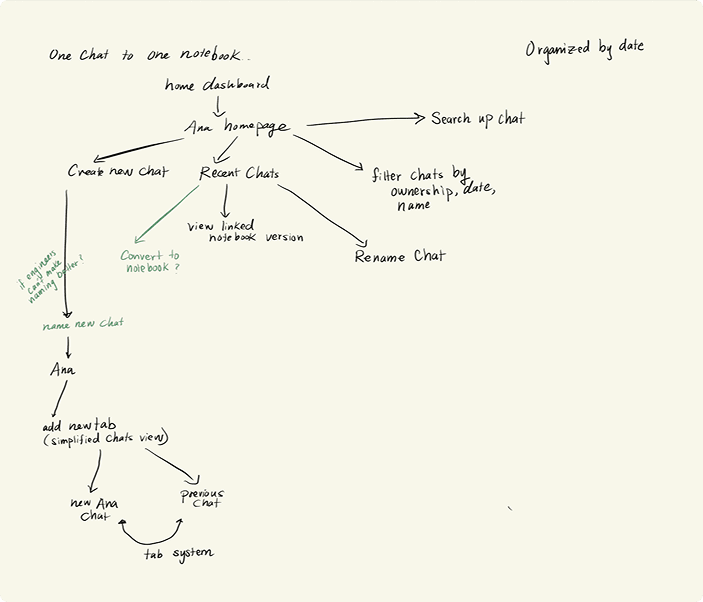 One Chat to one notebook..
Organized by date
home dashboard
Ana homepage
Search up chat
Create new chat
Recent Chats
filter chats by
ownership, date,
name
view linked
notebook version
Convert to
notebook?
Rename Chat
if engineers
can't make
naming better?
name new chat
Ana
add new tab
(simplified chats view)
new Ana
Chat
previous
Chat
tab system